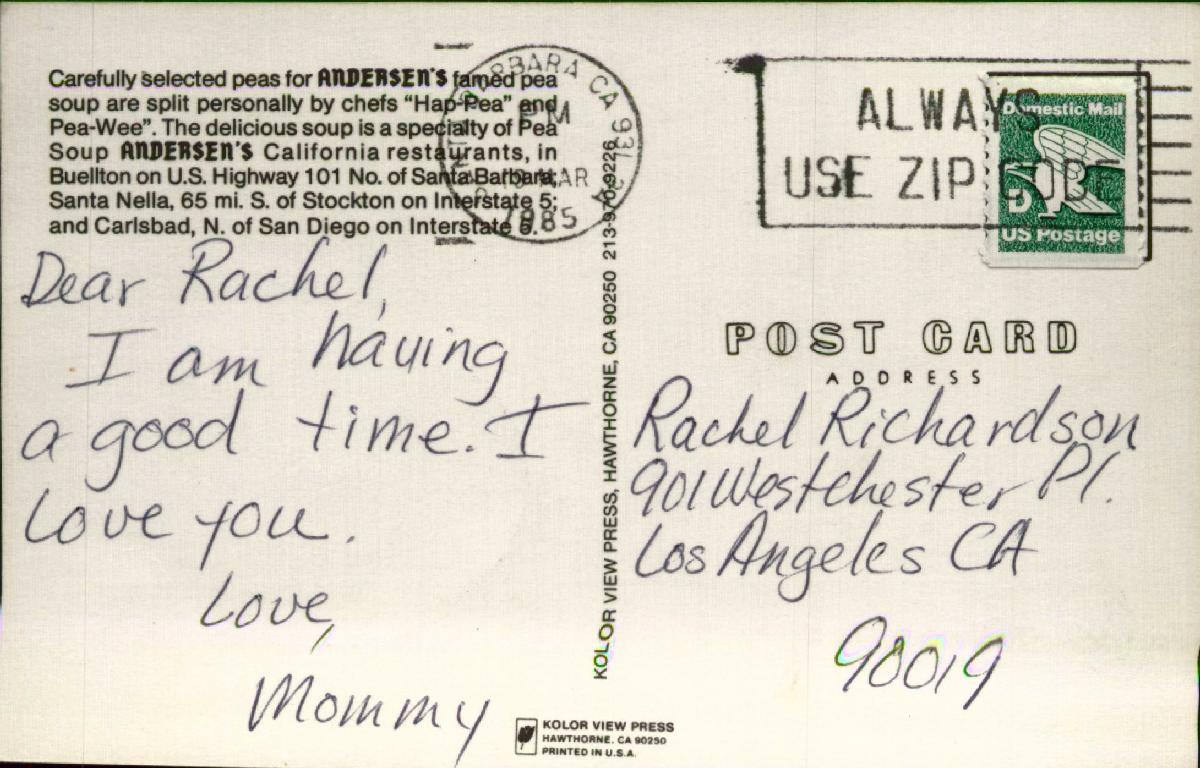 Carefully selected peas for ANDERSEN'S famed pea
soup are split personally by chefs "Hap-Pea" and
Pea-Wee". The delicious soup is a specialty of Pea
Soup ANDERSEN'S California restaurants, in
Buellton on U.S. Highway 101 No. of Santa Barbara;
Santa Nella, 65 mi. S. of Stockton on Interstate 5;
and Carlsbad, N. of San Diego on Interstate 5.
Dear Rachel,
I am having
a good time. I
love you.
Love,
Mommy
BARBARA CA 931
PM
MAR
1985
ALWAYS
USE ZIP CODE
Domestic Mail
D
US Postage
KOLOR VIEW PRESS, HAWTHORNE, CA 90250
POST CARD
ADDRESS
Rachel Richardson
901 Westchester Pl.
Los Angeles CA
90019
KOLOR VIEW PRESS
HAWTHORNE, CA 90250
PRINTED IN U.S.A.